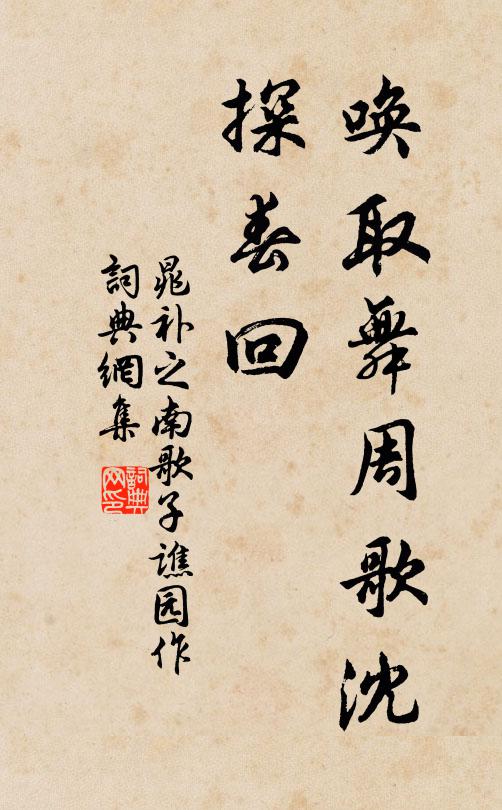 唤取舞周歌沈
探春回
晁补之南歌子谯园作
詞典網集
詞典網印